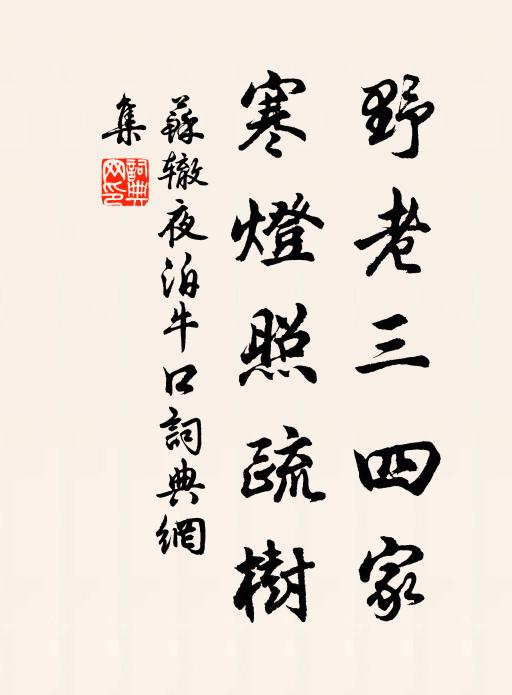 野老三四家
寒燈照疏樹
蘇辙夜泊牛口詞典網
集
詞典
网印